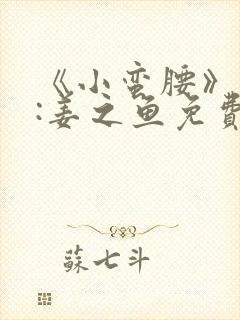 《小蛮腰》
:姜之鱼免費
蘇七斗